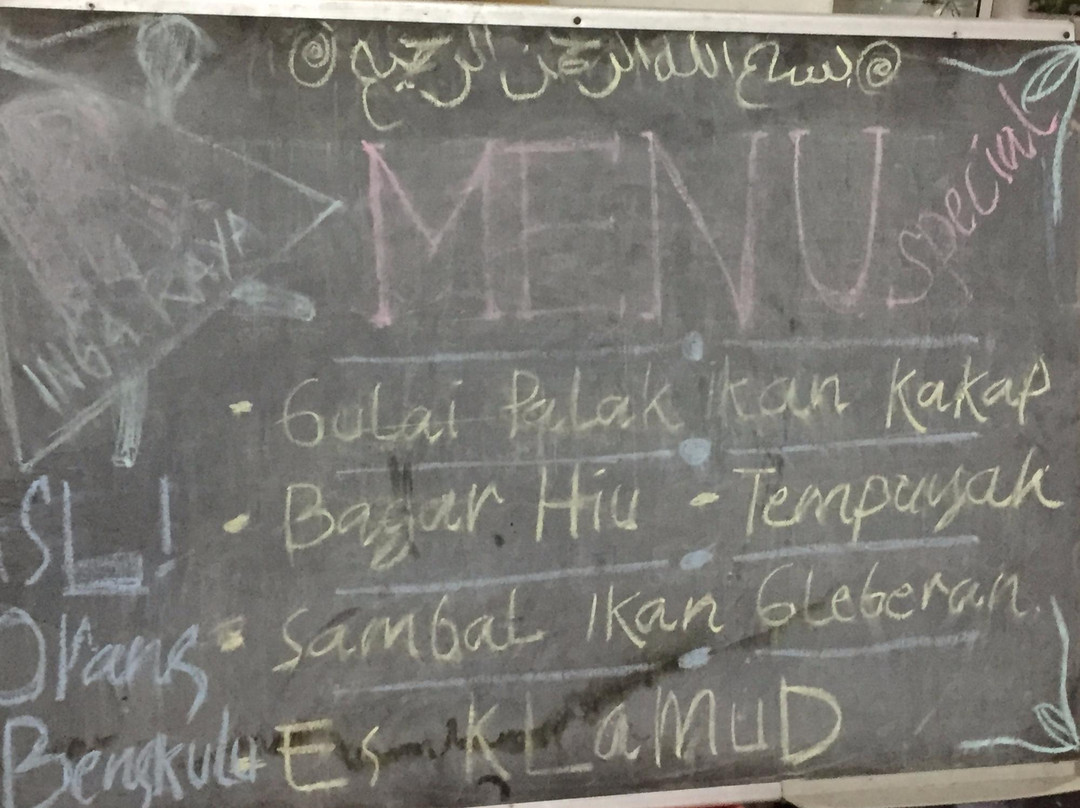 بسم الله الرحمن الرحيم
MENU
special
INGA RAYA
- Gulai Palak Ikan Kakap
- Bagar Hiu - Tempuyak
- Sambal Ikan Gleberan.
- Es KLaMUD
SL!
Orang
Bengkulu